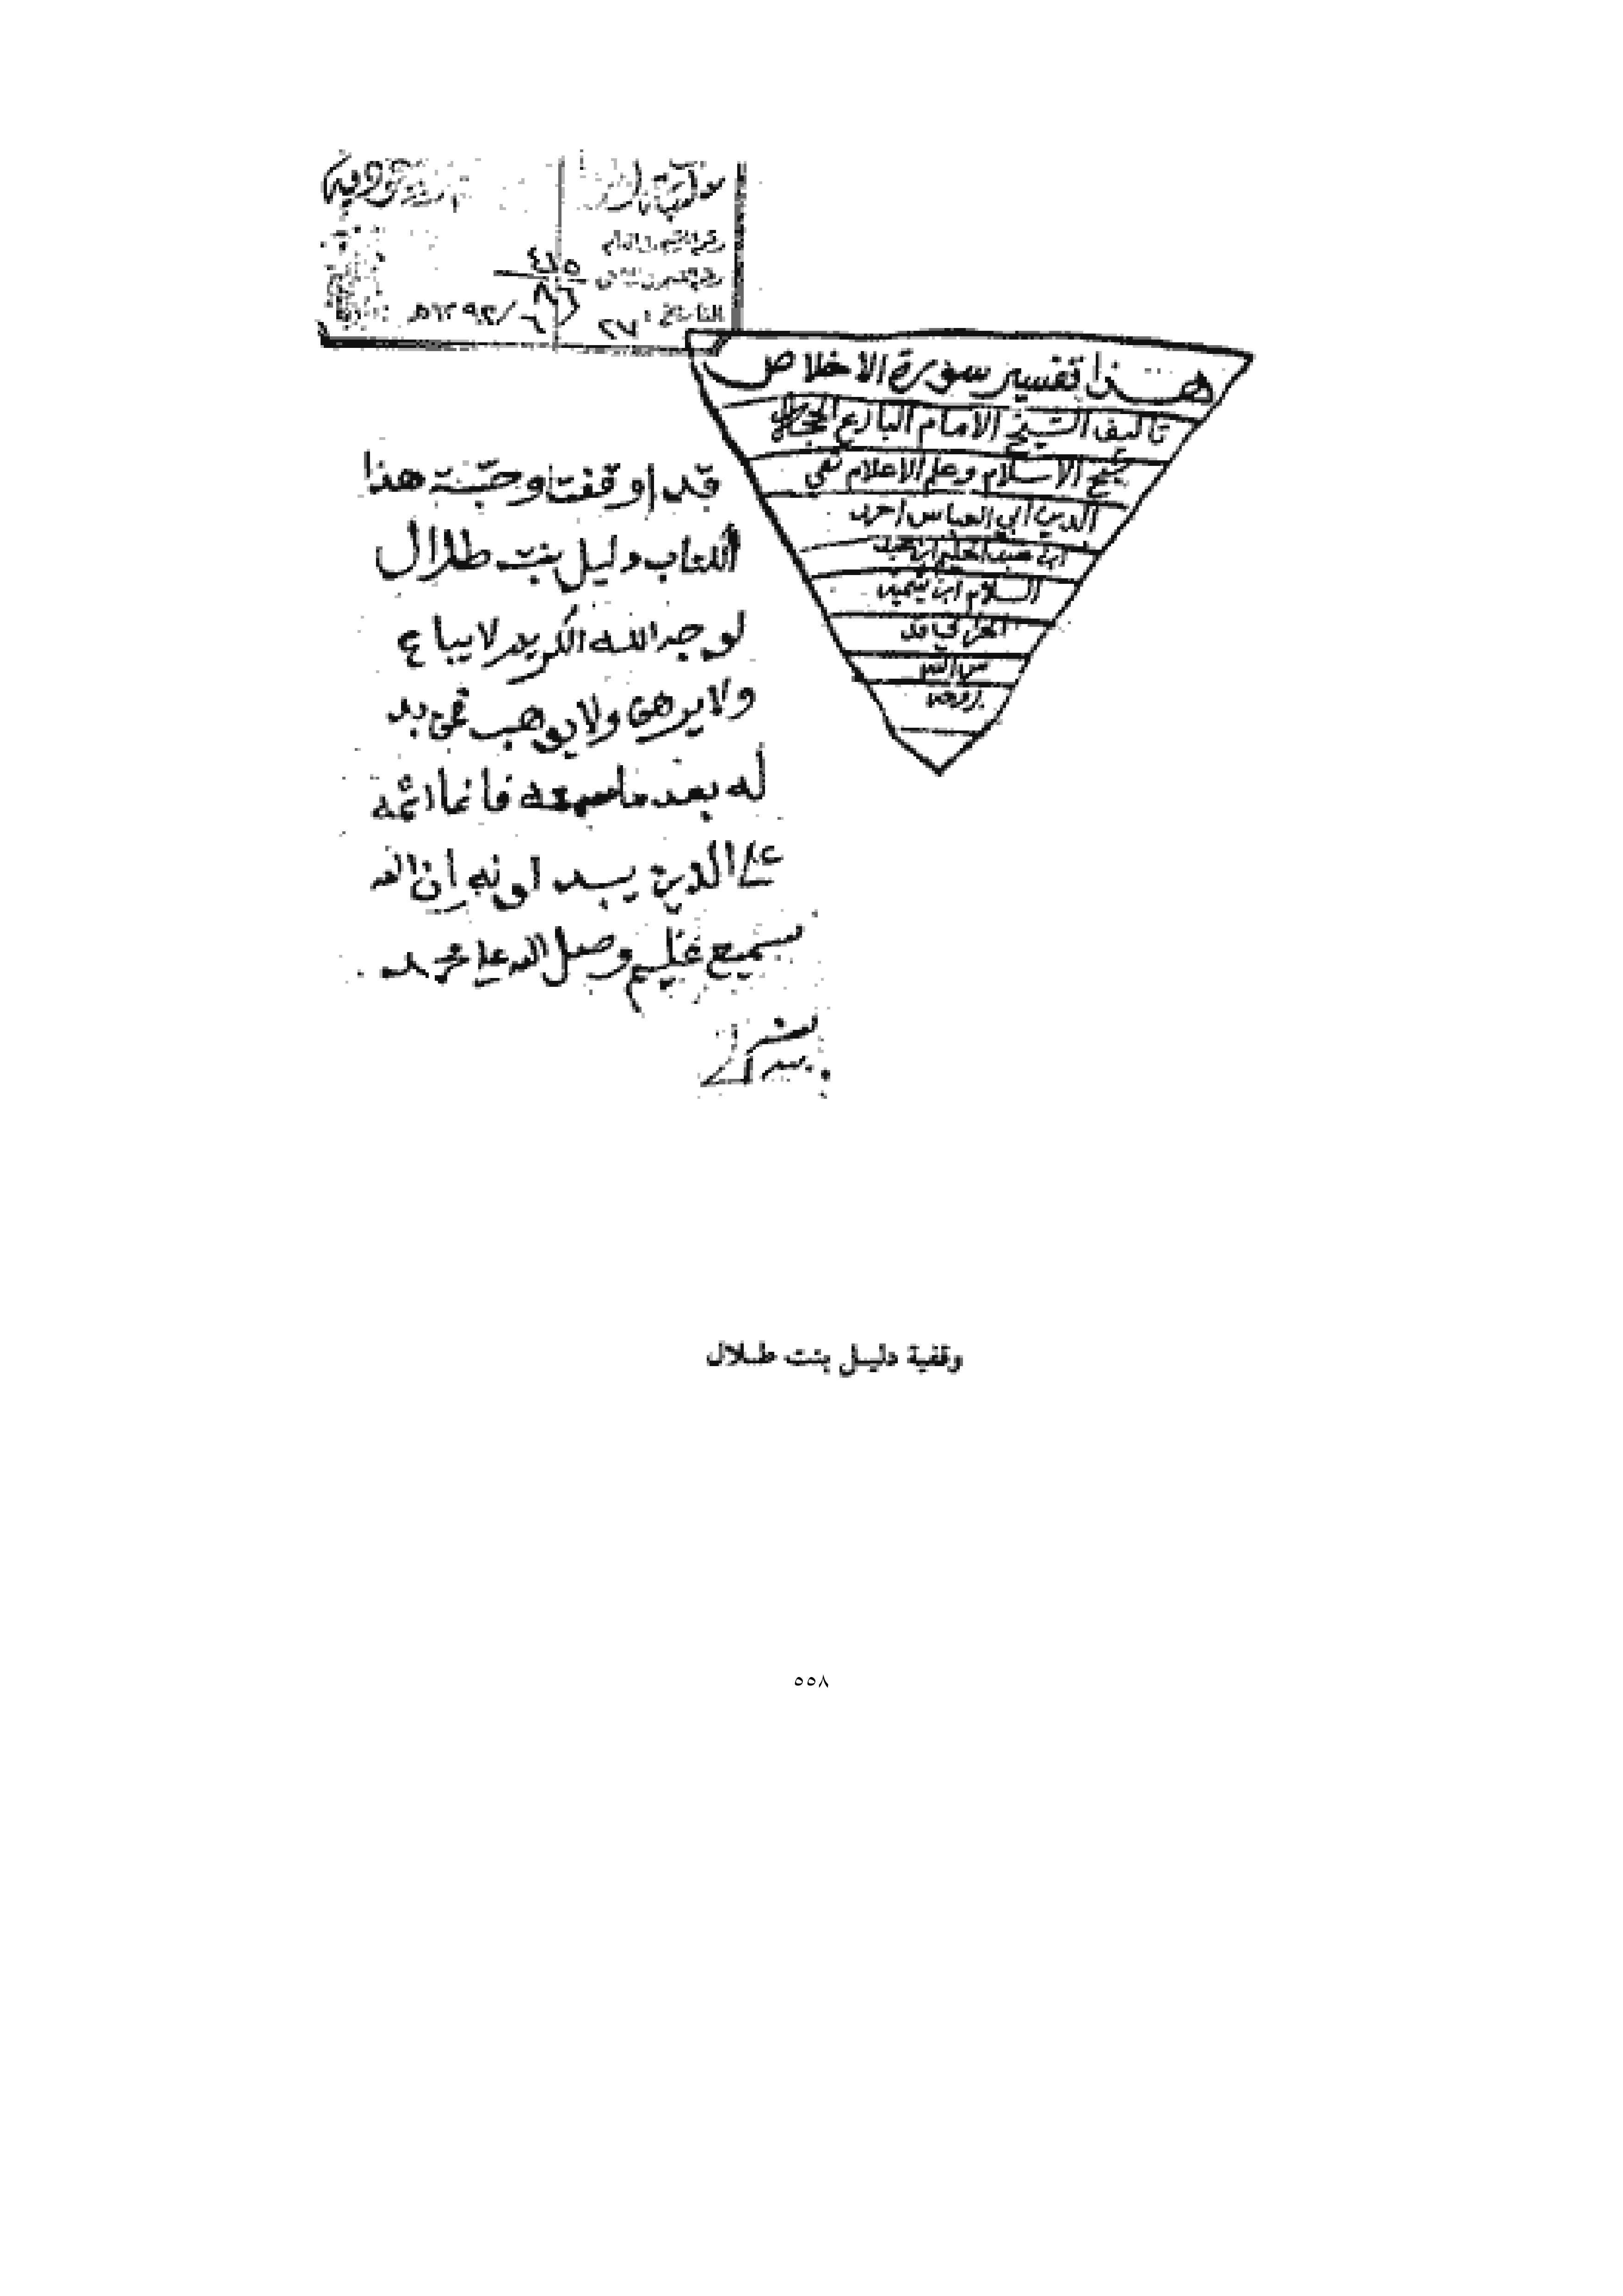 رقم التقييد العام
٤١٥
التاريخ: ٢٧ / ١٣٩٣هـ
هذا تفسير سورة الاخلاص
تاليف الشيخ الامام البارع
الاسلام وعلم الاعلام تقي
الدين ابي العباس احمد
ابن عبد الحليم ابن عبد
السلام ابن تيميه
الحراني قد
س الله
روحه
قد اوقفتا وحبّسته هذا
الكتاب دليل بنت طلال
لوجه الله الكريم لا يباع
ولا يرهن ولا يوهب فمن بد
له بعد ما سمعه فانما اثمه
على الذين يبدلونه ان الله
سميع عليم وصل الله على محمد
وقفية دليـل بنت طـلال
٥٥٨